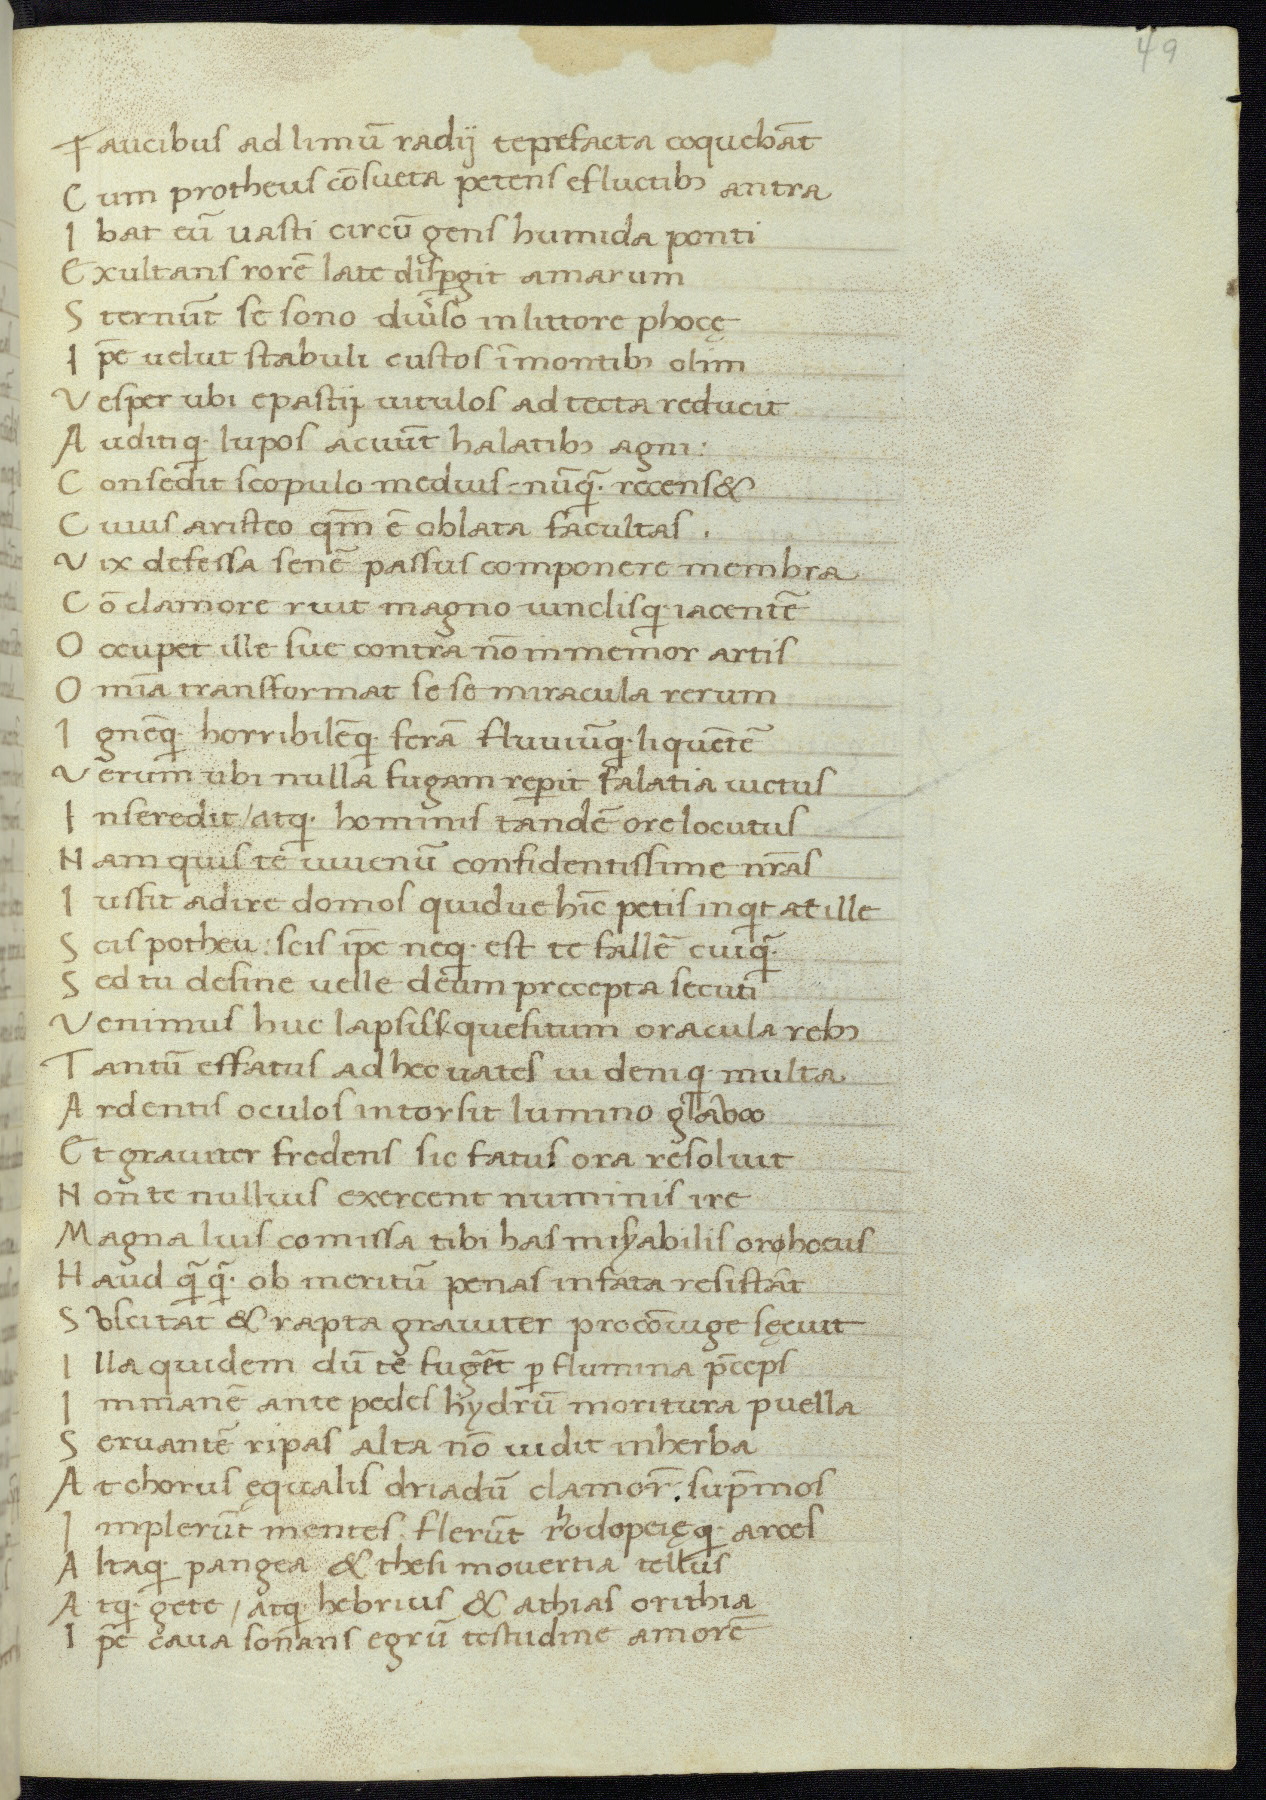 49
Faucibus ad limū radij tepefacta coquebāt
Cum protheus cōsueta petens efluctibꝫ antra
Ibat eū uasti circū gens humida ponti
Exultans rorē late disꝑgit amarum
Sternūt se sono diũso in littore phocę
Ip̄e uelut stabuli custos ī montibꝫ olim
Vesper ubi e pastij uitulos ad tecta reducit
Auditiq· lupos acuūt halatibꝫ agni:
Consedit scopulo medius nūq̄· recens&
Cuius aristeo qm̄ ē oblata facultas .
Vix defessa senē passus componere membra
Cō clamore ruit magno uinclisq· iacentē
Occupet ille sue contra nō inmemor artis
Omīa transformat se se miracula rerum
Ignēq· horribilēq· ferā fluuiūq· liquētē
Verum ubi nulla fugam reꝑit falatia uictus
In seredit / atq· hominis tandē ore locutus
Nam quis te iuuenū confidentissime nr̄as
Iussit adire domos quidue hīc petis inqt at ille
Scis potheu: scis ip̄e neq· est te fallē cuiq̄·
Sed tu desine uelle deum precepta secuti
Venimus huc lapsis quesitum oracula rebꝫ
Tantū effatus ad hec uates ui deniq· multa
Ardentis oculos intorsit lumino glauco
Et grauiter fredens sic fatus ora resoluit
Non te nullius exercent numinis ire
Magna luis comissa tibi has misabilis orphocus
Haud q̄q̄· ob meritū penas in fata resistāt
Suscitat & rapta grauiter pro cōiuge sęcuit
Illa quidem dū te fugēt ꝑ flumina p̄ceps
Immanē ante pedes hydrū moritura puella
Seruantē ripas alta nō uidit in herba
At chorus ęqualis driadū clamor̄ sup̄mos
Implerūt mentes flerūt rhodopeięq· arces
Altaq· pangea & thesi mouertia tellus
Atq· gete / atq· hebrius & athias orithia
Ip̄e caua sonans egrū testudine amorē